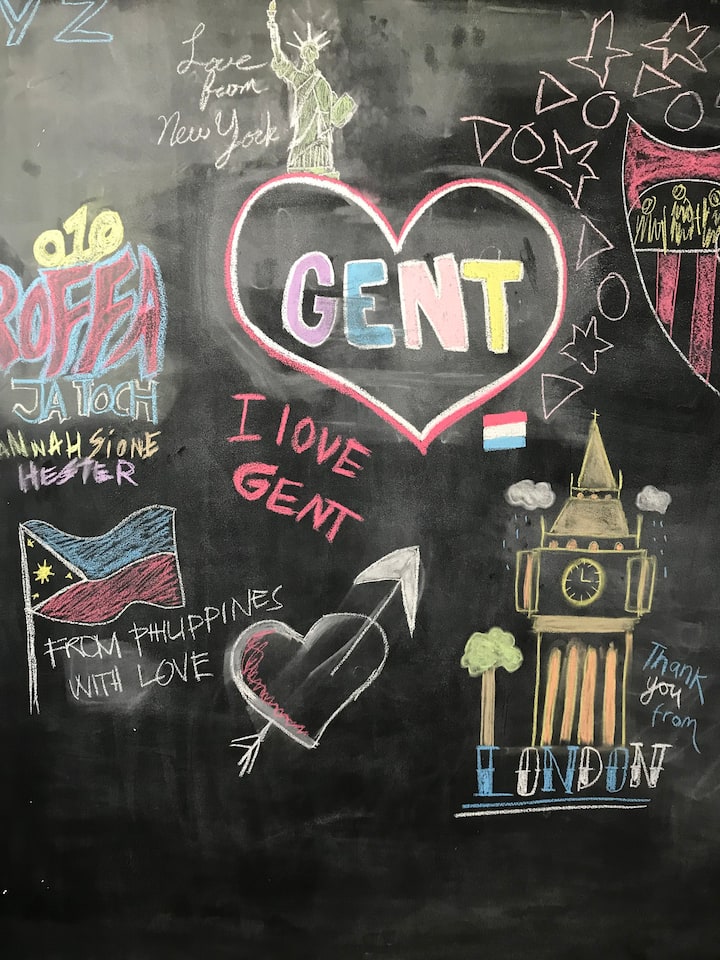 YZ
Love
from
New York
GENT
010
ROFFA
JA TOCH
ANNAH SIONE
HESTER
I LOVE
GENT
FROM PHILIPPINES
WITH LOVE
Thank
you
from
LONDON